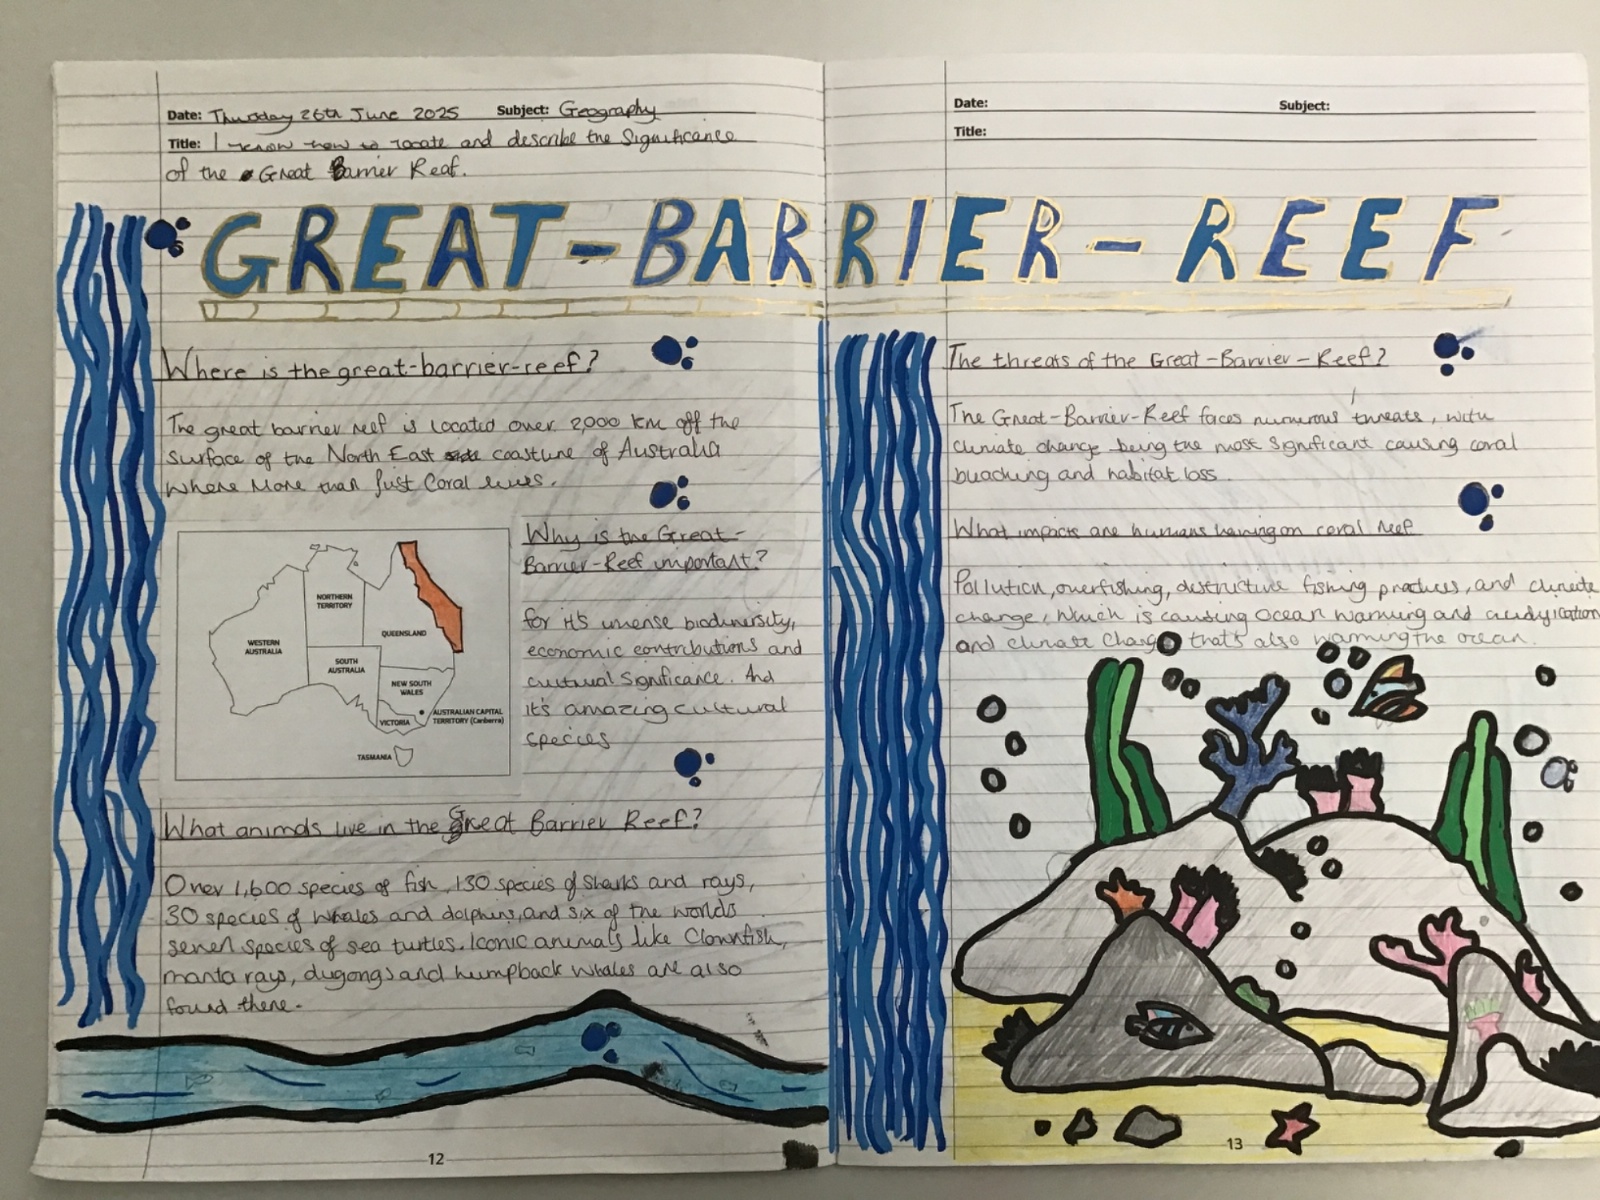 Date: Thursday 26th June 2025 Subject: Geography
Title: I know how to locate and describe the Significance
of the Great Barrier Reef.
Date: Subject:
Title:
GREAT-BARRIER-REEF
Where is the great-barrier-reef?
The great barrier reef is located over 2,000 km off the
surface of the North East coastline of Australia
where More than just Coral lives.
NORTHERN
TERRITORY
WESTERN
AUSTRALIA
QUEENSLAND
SOUTH
AUSTRALIA
NEW SOUTH
WALES
VICTORIA
AUSTRALIAN CAPITAL
TERRITORY (Canberra)
TASMANIA
Why is the Great-
Barrier-Reef important?
for it's imense biodiversity,
economic contributions and
cultural Significance. And
it's amazing cultural
species
What animals live in the Great Barrier Reef?
Over 1,600 species of fish, 130 species of sharks and rays,
30 species of whales and dolphins, and six of the worlds
seven species of sea turtles. Iconic animals like Clownfish,
manta rays, dugongs and humpback whales are also
found there.
12
The threats of the Great-Barrier-Reef?
The Great-Barrier-Reef faces numurous threats, with
climate change being the most significant causing coral
bleaching and habitat loss.
What impacts are humans having on coral reef
Pollution, overfishing, destructive fishing practices, and climate
change, Which is causing Ocean warming and
and climate change that's also warming the ocean.
13